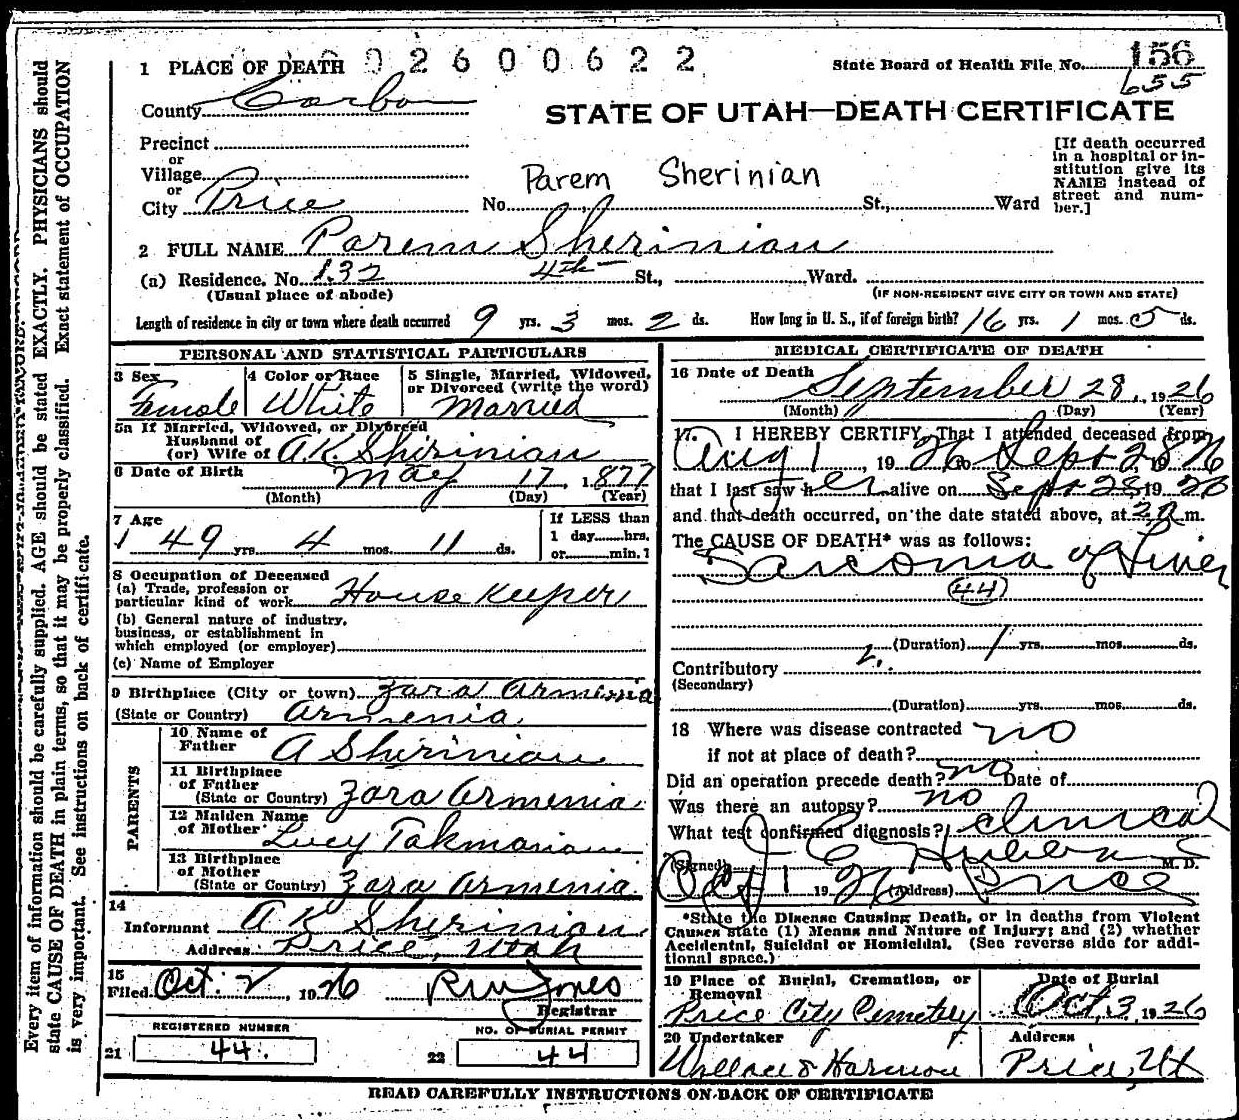 0 2 6 0 0 6 2 2
State Board of Health File No. 156
655
1 PLACE OF DEATH
County Carbon
STATE OF UTAH—DEATH CERTIFICATE
Precinct
or
Village
or
City Price
Parem Sherinian
No. St., Ward
[If death occurred
in a hospital or in-
stitution give its
NAME instead of
street and num-
ber.]
2 FULL NAME Parem Sherinian
(a) Residence. No. 132 4th St., Ward.
(Usual place of abode)
(IF NON-RESIDENT GIVE CITY OR TOWN AND STATE)
Length of residence in city or town where death occurred 9 yrs. 3 mos. 2 ds. How long in U. S., if of foreign birth? 16 yrs. 1 mos. 5 ds.
PERSONAL AND STATISTICAL PARTICULARS
3 Sex Female
4 Color or Race White
5 Single, Married, Widowed,
or Divorced (write the word)
Married
5a If Married, Widowed, or Divorced
Husband of
(or) Wife of A.K. Sherinian
6 Date of Birth May 17, 1877
(Month) (Day) (Year)
7 Age
49 yrs. 4 mos. 11 ds.
If LESS than
1 day......hrs.
or......min.?
8 Occupation of Deceased
(a) Trade, profession or
particular kind of work House Keeper
(b) General nature of industry,
business, or establishment in
which employed (or employer)
(c) Name of Employer
9 Birthplace (City or town) Zara Armenia
(State or Country) Armenia
PARENTS
10 Name of
Father A Sherinian
11 Birthplace
of Father
(State or Country) Zara Armenia
12 Maiden Name
of Mother Lucy Takmanian
13 Birthplace
of Mother
(State or Country) Zara Armenia
14
Informant A K Sherinian
Address Price, Utah
15
Filed Oct. 2, 1926 R W Jones
Registrar
REGISTERED NUMBER
21 44.
NO. OF BURIAL PERMIT
22 44
MEDICAL CERTIFICATE OF DEATH
16 Date of Death
September 28, 1926
(Month) (Day) (Year)
17. I HEREBY CERTIFY, That I attended deceased from
Aug 1, 1926 to Sept 28 1926
that I last saw her alive on Sept 28 1926
and that death occurred, on the date stated above, at 2 a m.
The CAUSE OF DEATH* was as follows:
Sarcoma of Liver
(44)
(Duration) 1 yrs. mos. ds.
Contributory
(Secondary)
(Duration) yrs. mos. ds.
18 Where was disease contracted no
if not at place of death?
Did an operation precede death? no Date of
Was there an autopsy? no
What test confirmed diagnosis? Clinical
(Signed) J E Hubbard M. D.
Oct 1 1926 (Address) Price
*State the Disease Causing Death, or in deaths from Violent
Causes state (1) Means and Nature of Injury; and (2) whether
Accidental, Suicidal or Homicidal. (See reverse side for addi-
tional space.)
19 Place of Burial, Cremation, or
Removal
Price City Cemetery
Date of Burial
Oct. 3, 1926
20 Undertaker
Wallace & Harmon
Address
Price, Ut
READ CAREFULLY INSTRUCTIONS ON BACK OF CERTIFICATE
Every item of information should be carefully supplied. AGE should be stated EXACTLY. PHYSICIANS should
state CAUSE OF DEATH in plain terms, so that it may be properly classified. Exact statement of OCCUPATION
is very important. See instructions on back of certificate.